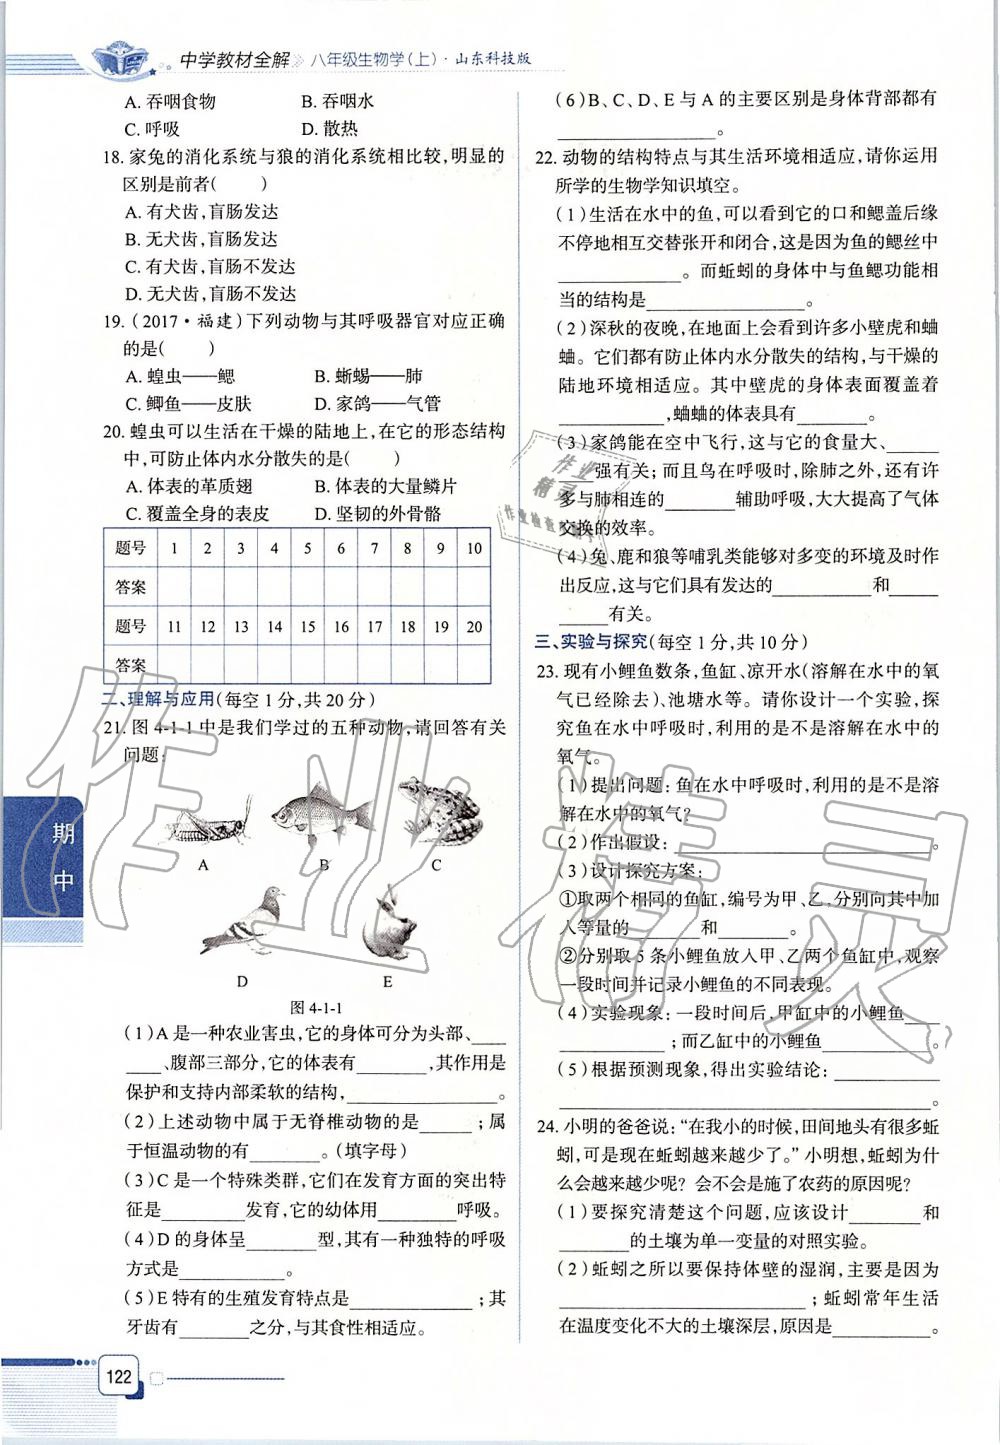 中学教材全解 八年级生物学(上)·山东科技版
A. 吞咽食物 B. 吞咽水
C. 呼吸 D. 散热
18. 家兔的消化系统与狼的消化系统相比较,明显的
区别是前者( )
A. 有犬齿,盲肠发达
B. 无犬齿,盲肠发达
C. 有犬齿,盲肠不发达
D. 无犬齿,盲肠不发达
19. (2017·福建)下列动物与其呼吸器官对应正确
的是( )
A. 蝗虫——鳃 B. 蜥蜴——肺
C. 鲫鱼——皮肤 D. 家鸽——气管
20. 蝗虫可以生活在干燥的陆地上,在它的形态结构
中,可防止体内水分散失的是( )
A. 体表的革质翅 B. 体表的大量鳞片
C. 覆盖全身的表皮 D. 坚韧的外骨骼
题号 1 2 3 4 5 6 7 8 9 10
答案
题号 11 12 13 14 15 16 17 18 19 20
答案
二、理解与应用(每空 1 分,共 20 分)
21. 图 4-1-1 中是我们学过的五种动物,请回答有关
问题:
A B C
D E
图 4-1-1
(1)A 是一种农业害虫,它的身体可分为头部、____
____、腹部三部分,它的体表有________,其作用是
保护和支持内部柔软的结构,________________。
(2)上述动物中属于无脊椎动物的是______;属
于恒温动物的有________。(填字母)
(3)C 是一个特殊类群,它们在发育方面的突出特
征是________发育,它的幼体用________呼吸。
(4)D 的身体呈________型,其有一种独特的呼吸
方式是____________。
(5)E 特有的生殖发育特点是____________;其
牙齿有________之分,与其食性相适应。
期中
122
(6)B、C、D、E 与 A 的主要区别是身体背部都有
________________。
22. 动物的结构特点与其生活环境相适应,请你运用
所学的生物学知识填空。
(1)生活在水中的鱼,可以看到它的口和鳃盖后缘
不停地相互交替张开和闭合,这是因为鱼的鳃丝中
____________。而蚯蚓的身体中与鱼鳃功能相
当的结构是________________。
(2)深秋的夜晚,在地面上会看到许多小壁虎和蛐
蛐。它们都有防止体内水分散失的结构,与干燥的
陆地环境相适应。其中壁虎的身体表面覆盖着
____________,蛐蛐的体表具有________。
(3)家鸽能在空中飞行,这与它的食量大、______
____强有关;而且鸟在呼吸时,除肺之外,还有许
多与肺相连的________辅助呼吸,大大提高了气体
交换的效率。
(4)兔、鹿和狼等哺乳类能够对多变的环境及时作
出反应,这与它们具有发达的__________和______
______有关。
三、实验与探究(每空 1 分,共 10 分)
23. 现有小鲤鱼数条,鱼缸、凉开水(溶解在水中的氧
气已经除去)、池塘水等。请你设计一个实验,探
究鱼在水中呼吸时,利用的是不是溶解在水中的
氧气。
(1)提出问题:鱼在水中呼吸时,利用的是不是溶
解在水中的氧气?
(2)作出假设:________________________。
(3)设计探究方案:
①取两个相同的鱼缸,编号为甲、乙,分别向其中加
入等量的________和________。
②分别取 5 条小鲤鱼放入甲、乙两个鱼缸中,观察
一段时间并记录小鲤鱼的不同表现。
(4)实验现象:一段时间后,甲缸中的小鲤鱼____
____________;而乙缸中的小鲤鱼____________。
(5)根据预测现象,得出实验结论:____________
________________________________________。
24. 小明的爸爸说:“在我小的时候,田间地头有很多蚯
蚓,可是现在蚯蚓越来越少了。”小明想,蚯蚓为什
么会越来越少呢?会不会是施了农药的原因呢?
(1)要探究清楚这个问题,应该设计________和
________的土壤为单一变量的对照实验。
(2)蚯蚓之所以要保持体壁的湿润,主要是因为
__________________________;蚯蚓常年生活
在温度变化不大的土壤深层,原因是__________。
作业精灵
作业精灵